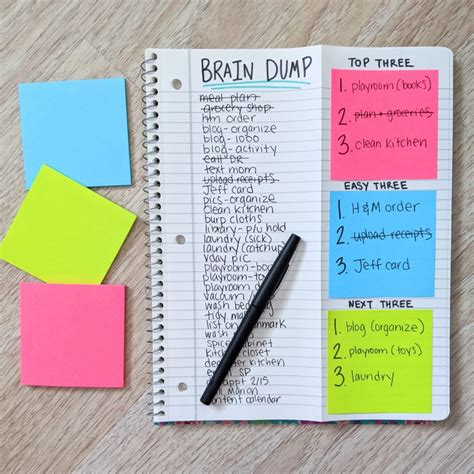 BRAIN DUMP
meal plan
grocery shop
hm order
blog-organize
blog-1000
blog-activity
call DR
text mom
upload receipts
Jeff card
pics-organize
clean kitchen
burp cloths
library-p/u hold
laundry (sick)
laundry (catchup
vday pic
playroom-boo
playroom-to
playroom-de
vacuum
wash be
tidy ma
list on mark
wash
spice cabinet
kitchen closet
de ter kitchen
SP
appt 2/15
call Marian
content calendar
TOP THREE
1. playroom (books)
2. plan + groceries
3. clean kitchen
EASY THREE
1. H&M order
2. upload receipts
3. Jeff card
NEXT THREE
1. blog (organize)
2. playroom (toys)
3. laundry